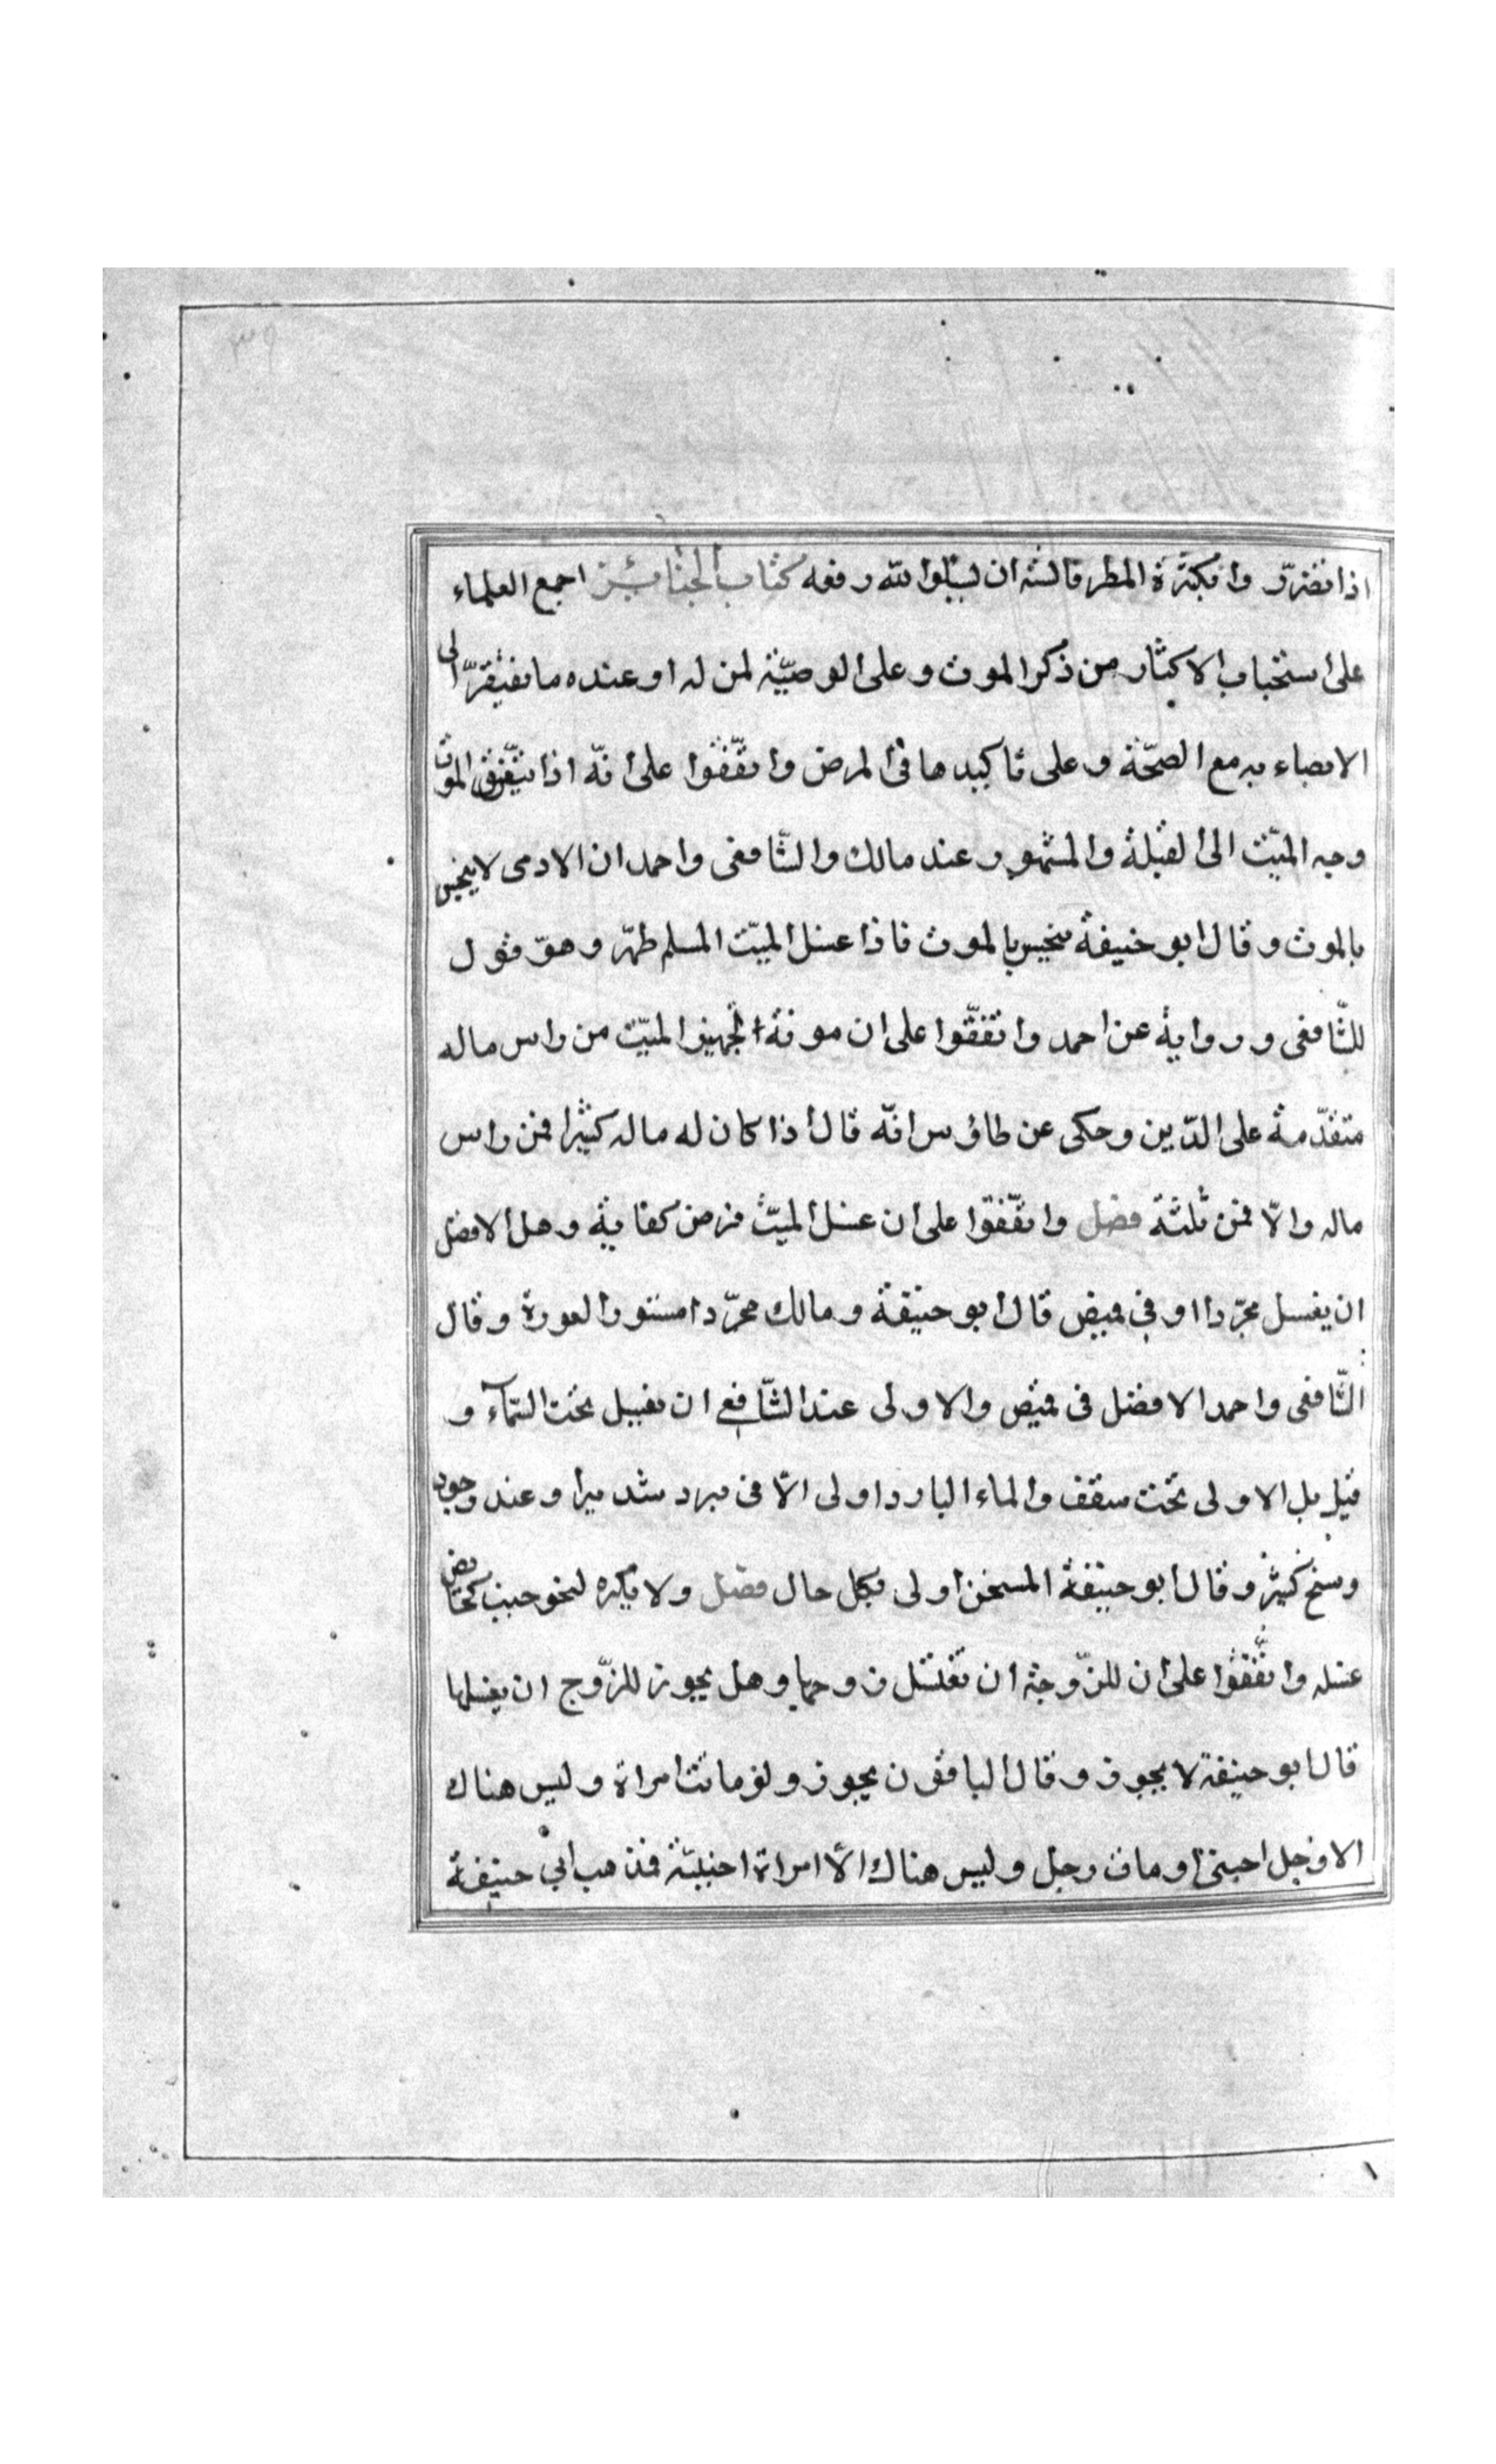 ٣٩
اذا تضرّر وا بكثرة المطر فالسّنه ان يسئلوا الله رفعه كتاب الجنائز اجمع العلماء
على استحباب الاكثار من ذكر الموت و على الوصيّة لمن له او عنده ما يفتقر الى
الايصاء به مع الصحّة و على تاكيدها فى المرض و اتّفقوا على انّه اذا تيقّن الموت
وجه الميّت الى القبلة و المشهور عند مالك و الشّافعى و احمد ان الادمى لا ينجس
بالموت و قال ابو حنيفة ينجس بالموت فاذا غسل الميّت المسلم طهر و هو قول
للشّافعى و رواية عن احمد و اتفقّوا على ان مونة تجهيز الميّت من راس ماله
متقدّمة على الدّين و حكى عن طاؤس انّه قال اذا كان له مال كثيرا فمن راس
ماله و الّا فمن ثلثه فصل و اتّفقوا على ان غسل الميّت فرض كفاية و هل الافضل
ان يغسل مجرّدا او فى قميص قال ابو حنيفة و مالك مجرّدا مستور العورة و قال
الشّافعى و احمد الافضل فى قميص و الاولى عند الشّافعى ان يغسل تحت السّمآء و
قيل بل الاولى تحت سقف و الماء البارد اولى الّا فى برد شديد او عند وجود
وسخ كثير و قال ابو حنيفة المسخن اولى بكل حال فصل و لا يكره لنحو جنب كحائض
غسله و اتّفقوا على ان للزّوجة ان تغتسل زوجها و هل يجوز للزّوج ان يغسلها
قال ابو حنيفة لا يجوز و قال الباقون يجوز و لو ماتت امراة و ليس هناك
الا رجل اجنبى او مات رجل و ليس هناك الّا امراة اجنبيّة فذهب ابى حنيفة